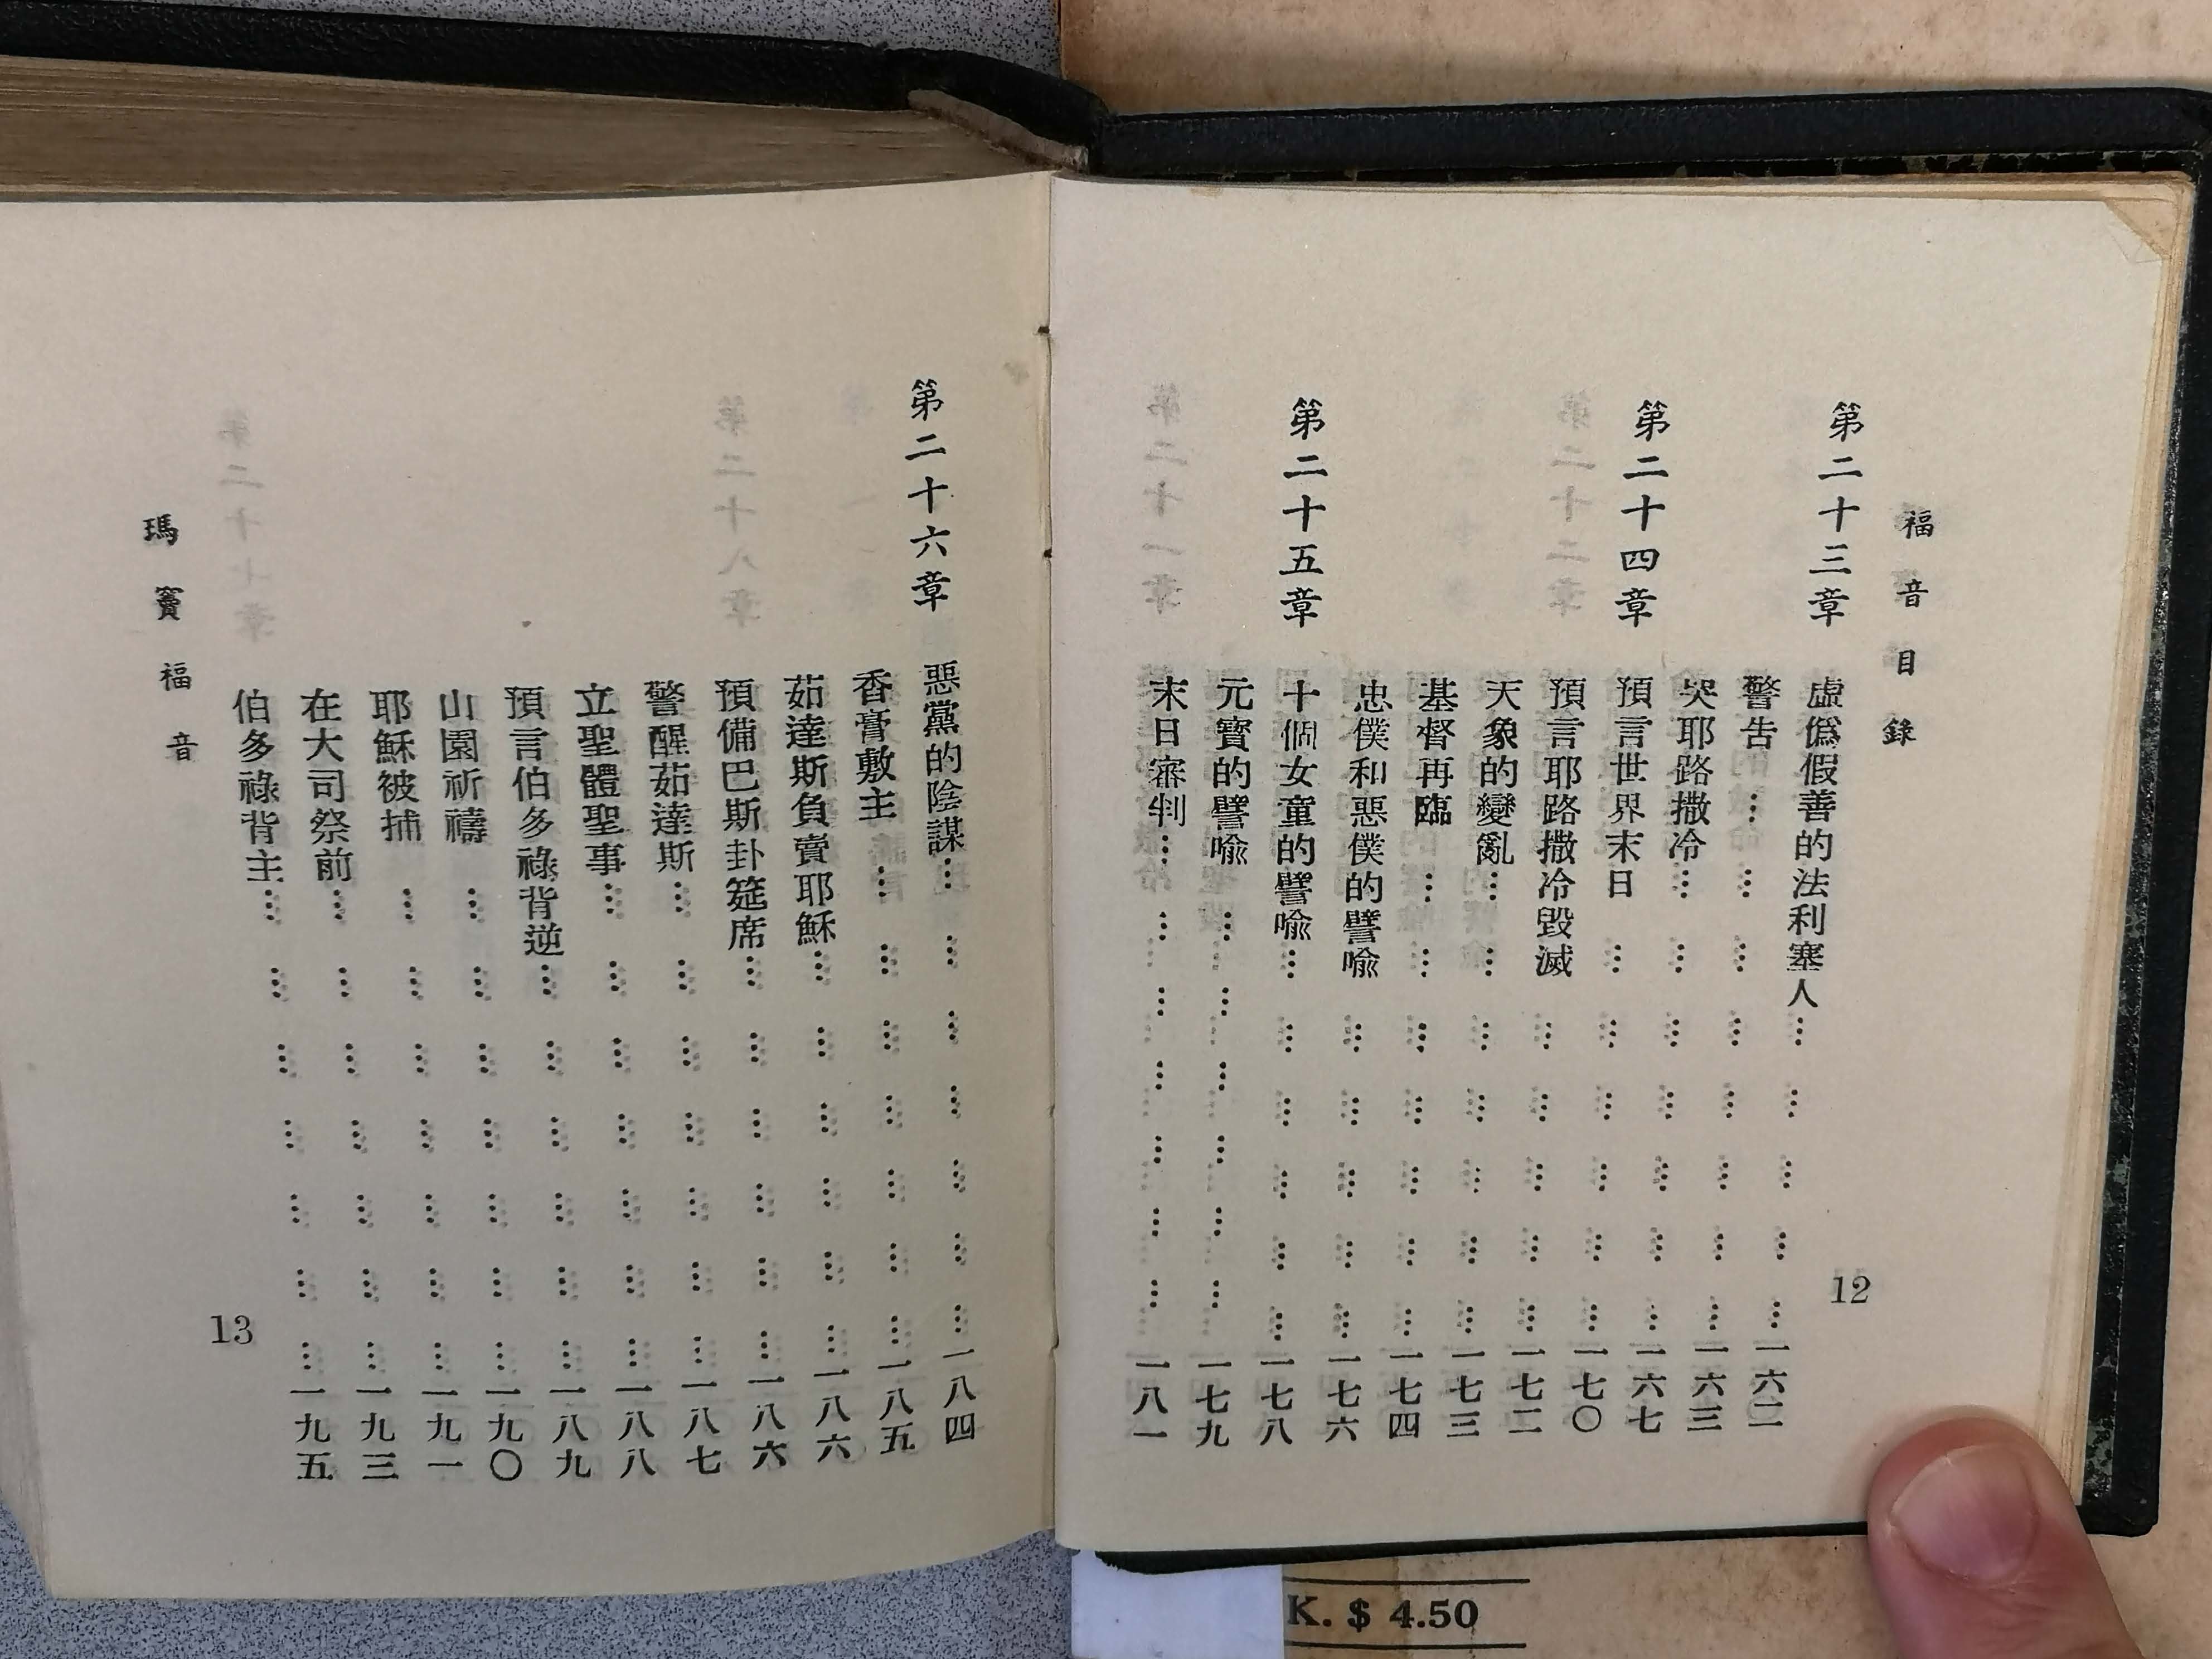 福音目錄
第二十三章 虛僞假善的法利塞人………………一六二
警告………………一六三
哭耶路撒冷………………一六七
第二十四章 預言世界末日………………一七〇
預言耶路撒冷毀滅………………一七二
天象的變亂………………一七三
基督再臨………………一七四
忠僕和惡僕的譬喻………………一七六
第二十五章 十個女童的譬喻………………一七八
元寶的譬喻………………一七九
末日審判………………一八一
12
第二十六章 惡黨的陰謀………………一八四
香膏敷主………………一八五
茹達斯負賣耶穌………………一八六
預備巴斯卦筵席………………一八六
警醒茹達斯………………一八七
立聖體聖事………………一八八
預言伯多祿背逆………………一八九
山園祈禱………………一九〇
耶穌被捕………………一九一
在大司祭前………………一九三
伯多祿背主………………一九五
瑪竇福音
13
K. $ 4.50